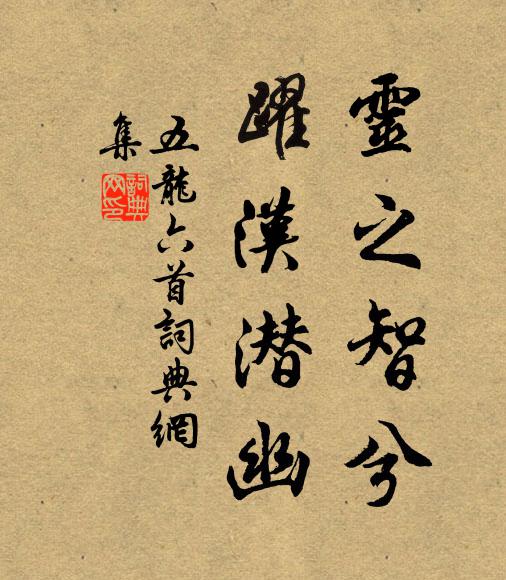 靈之智兮
躍漢潛幽
五龍六首詞典網
集
詞典網印